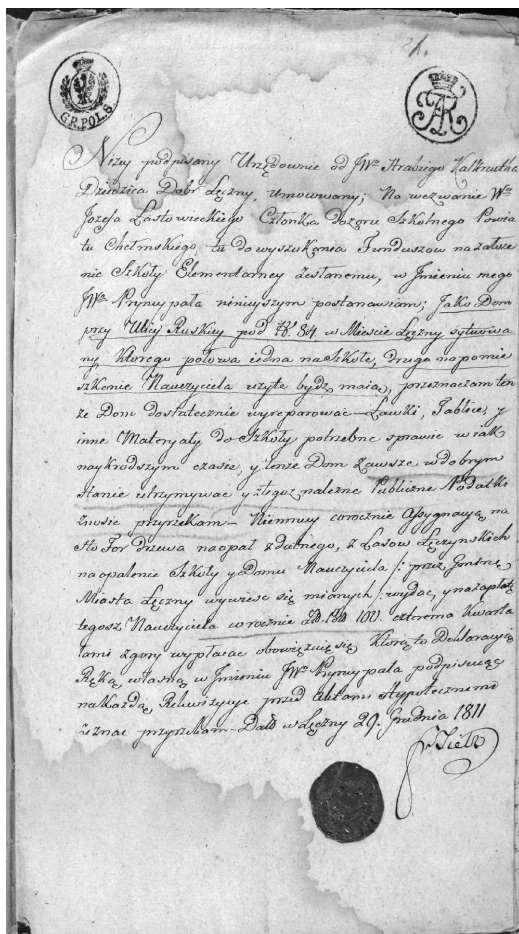 21.
G.R.POL.S.
FAR
Niżey podpisany Urzędownie od JWo Hrabiego
Dziedzica Dóbr Łęczny, umocowany; Na wezwanie Wo
Jozefa Łastowieckiego Członka dozoru Szkolnego Powia
tu Chełmskiego tu do wyszukania Funduszow na założe
nie Szkoły Elementarney zesłanemu, w Jmieniu mego
JWo Pryncypała ninieyszym postanawiam; Jako Dom
przy Ulicy Ruskiey pod No 84. w Mieście Łęczny sytuowa
ny, ktorego połowa iedna na Szkołę, druga na pomie
szkanie Nauczyciela użyte bydź maią, przeznaczam ten
że Dom dostatecznie wyreparować – Ławki, Tablice, y
inne Materyały do Szkoły potrzebne sprawić w iak
naykrodszym czasie, y tenże Dom zawsze w dobrym
stanie utrzymywać y z tegoż należne Publiczne Podatki
znosić przyrzekam – Niemniey corocznie Assygnacyą na
sto For drzewa na opał zdatnego, z Lasow Łęczynskich
na opalenie Szkoły y Domu Nauczyciela /: przez Gminę
Miasta Łęczny wywieść się mianych :/ wydać, y na zapłatę
tegosz Nauczyciela w rocznie 100. czterema Kwarta
łami z gory wypłacać obowięzuię się. Ktorą to Deklaracyą
Ręką własną w Jmieniu JWo Pryncypała podpisuiąc
na każdą Rekwizycye przed Aktami Hypotecznemi
zeznać przyrzekam – Dało w Łęczny 29. Grudnia 1811